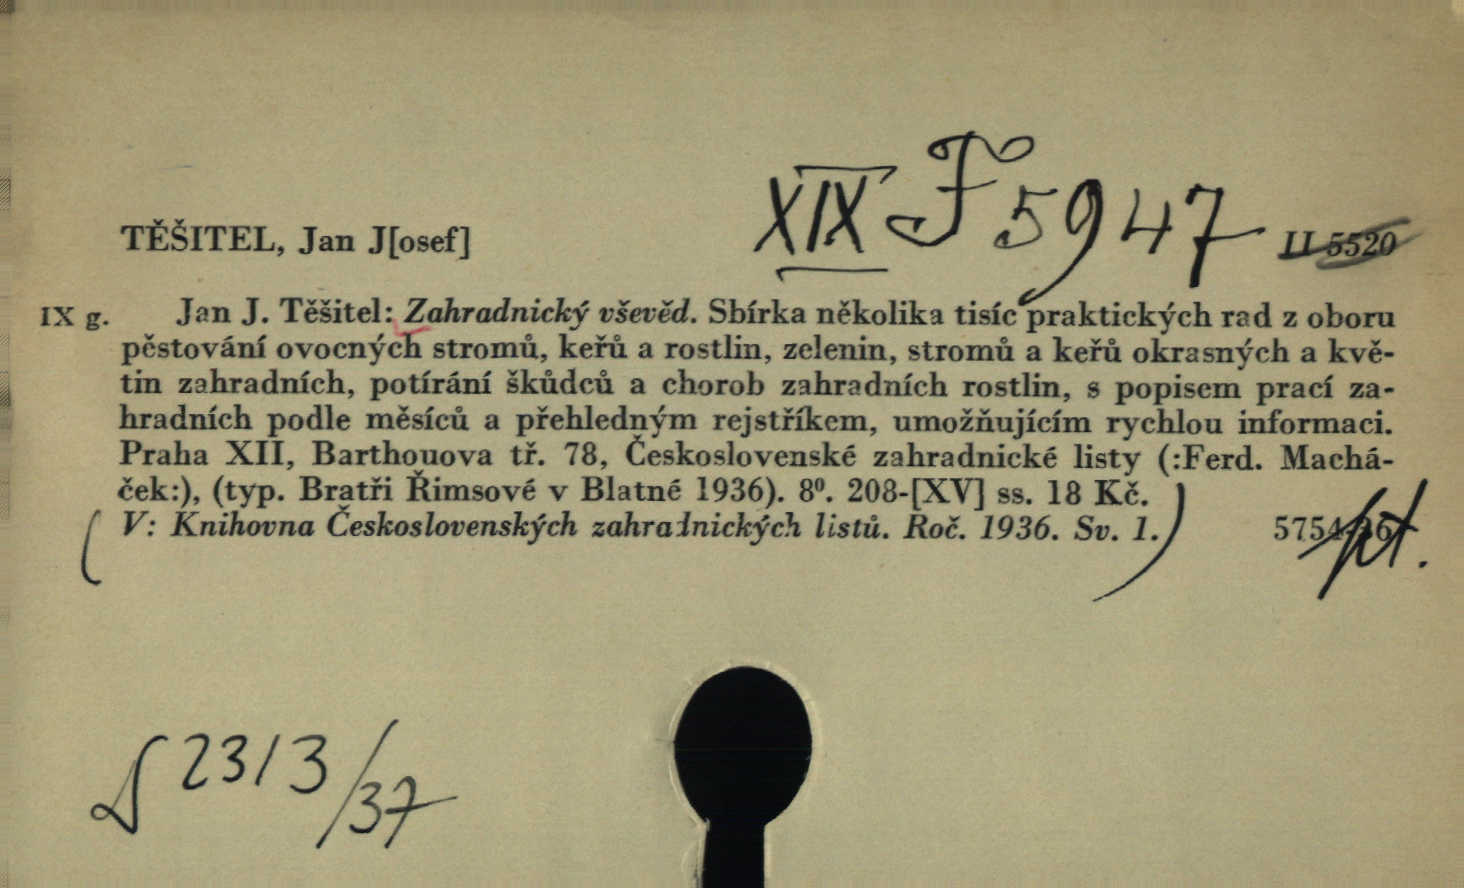 XIX F 5947
TĚŠITEL, Jan J[osef] II 5520
IX g. Jan J. Těšitel: Zahradnický vševěd. Sbírka několika tisíc praktických rad z oboru
pěstování ovocných stromů, keřů a rostlin, zelenin, stromů a keřů okrasných a kvě-
tin zahradních, potírání škůdců a chorob zahradních rostlin, s popisem prací za-
hradních podle měsíců a přehledným rejstříkem, umožňujícím rychlou informaci.
Praha XII, Barthouova tř. 78, Československé zahradnické listy (:Ferd. Machá-
ček:), (typ. Bratři Řimsové v Blatné 1936). 8⁰. 208-[XV] ss. 18 Kč.
(V: Knihovna Československých zahradnických listů. Roč. 1936. Sv. 1.) 5754-36
2313/37